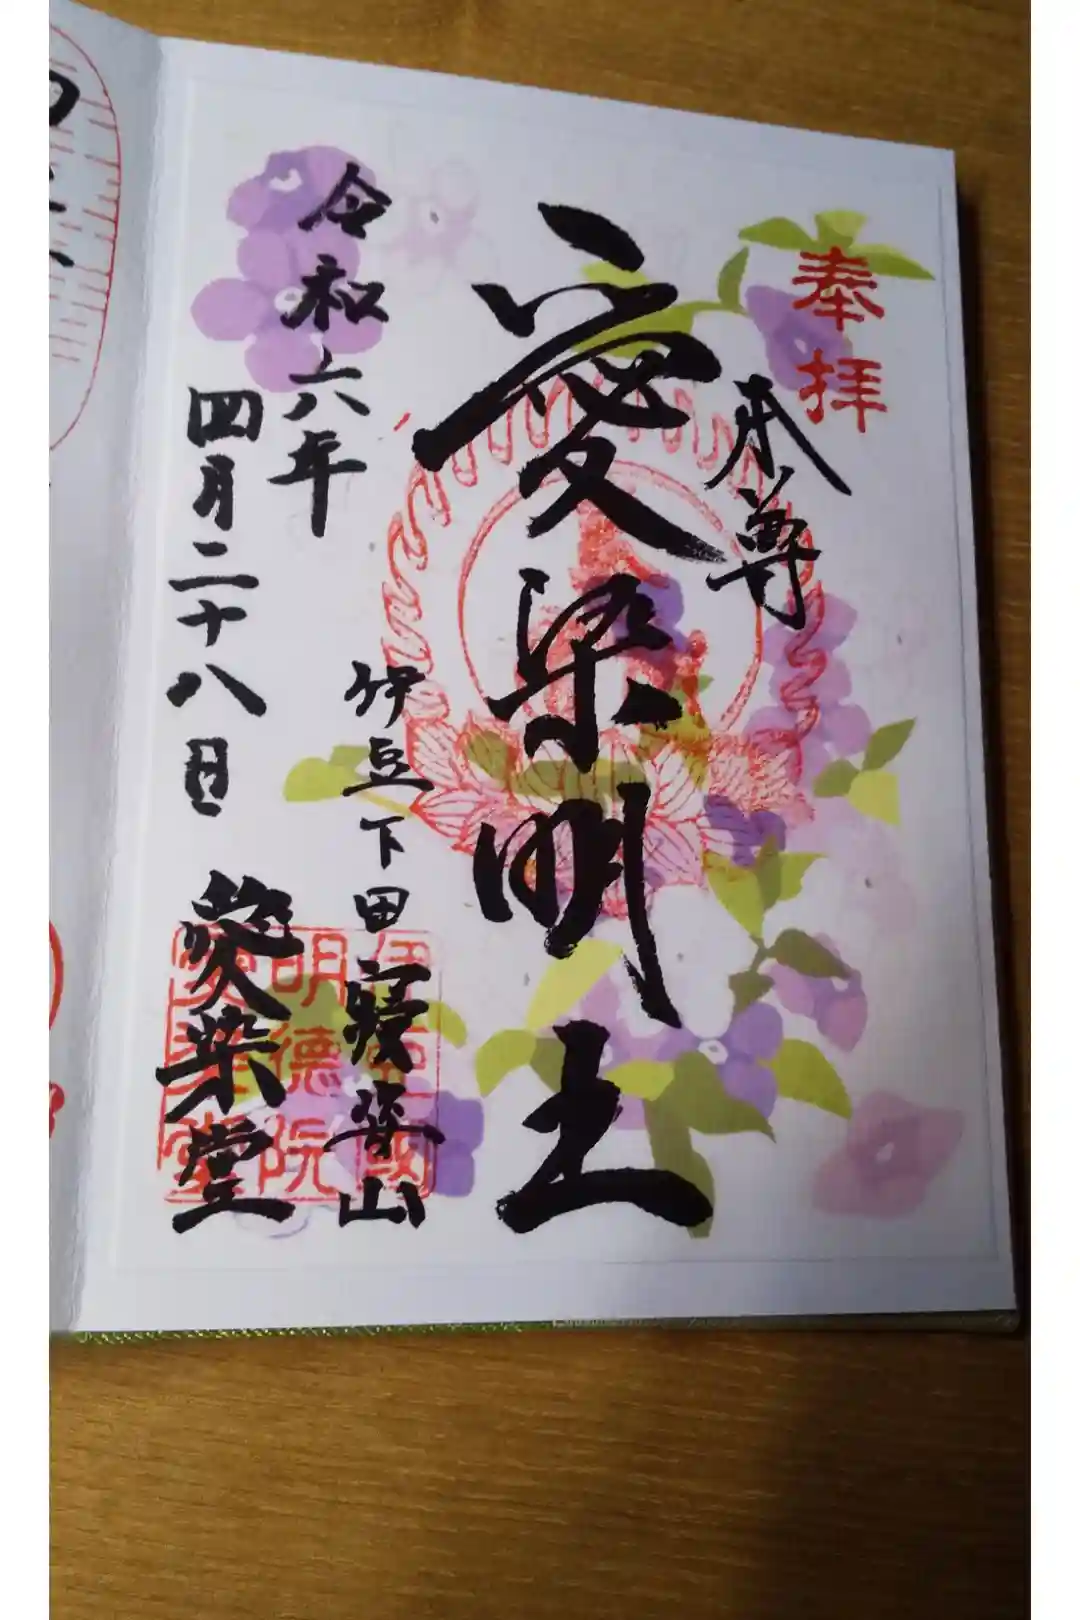 奉拝
本尊
愛染明王
伊豆下田寝姿山
愛染堂
令和六年
四月二十八日
明徳院